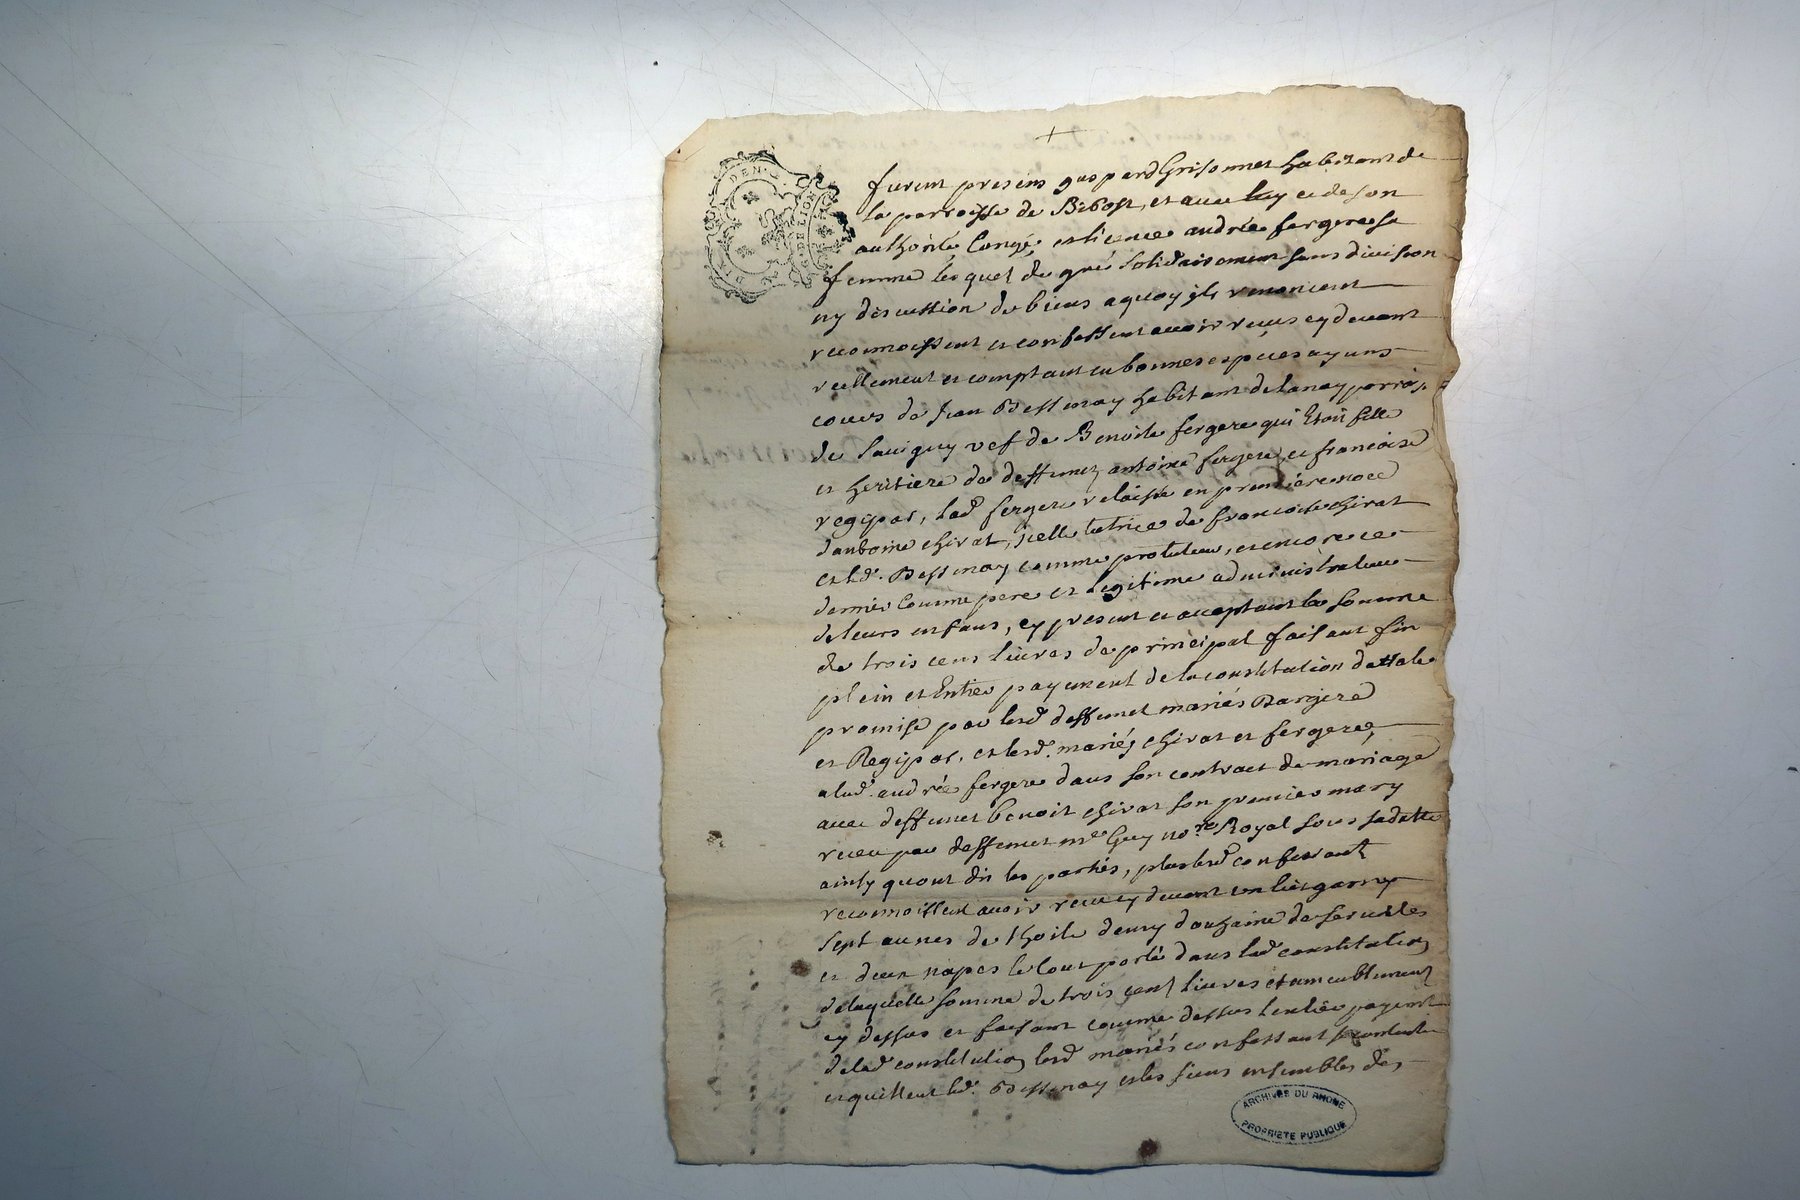 DIX DEN.
G. DE LION
furent presens gaspard Grisonnet habitant de
la parroisse de Bibost, et avec luy et de son
authorité, Congé, et licence andrée fergere sa
femme lesquel de gré solidairement sans division
ny discution de biens a quoy ils renoncent
reconnoissent et confessent avoir reçus cy devant
reellement et comptant en bonnes especes ayans
cours de Jean Bessenay habitant de lanay parroisse
de Savigny vef de Benoite fergere qui Etoit fille
et heritiere de deffunct antoine fergere, et francoise
regipas, lad fergere relaissé en premiere noce
dantoine chirat, icelle tutrice de francoise chirat
et led. Bessenay comme protuteur, et encore ce
dernier Comme pere et legitime administrateur
de leurs enfans, cy present et acceptant la somme
de trois cens livres de principal faisant fin
plein et Entier payement de la constitution dottale
promise par lesd deffunct mariés
et Regipas, et lesd. mariés chirat et fergere,
a lad. andrée fergere dans son contract de mariage
avec deffunct benoit chirat son premier mary
receu par deffunct me Guy nore Royal sous sa datte
ainsy quont dit les parties, plus lesd confessants
reconnoissent avoir receu cy devant un lict garny
sept aunes de thoile demy douzaine de serviettes
et deux napes le tout porté dans lad constitution
de laquelle somme de trois cent livres et ameublement
cy dessus et faisant comme dessus lentier payement
de lad constitution lesd mariés confessant se contenter
et quittent led. Bessenay et les siens ensembles des
ARCHIVES DU RHONE
PROPRIETE PUBLIQUE